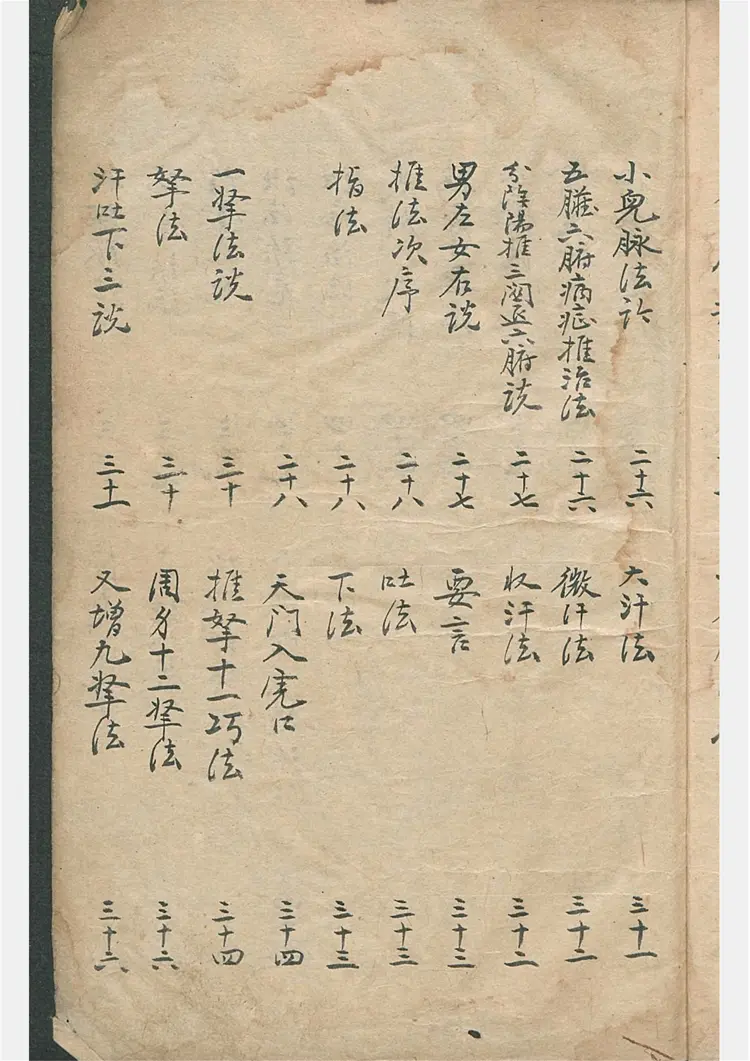 小兒脉法论 二十六
五臟六腑病症推治法 二十六
分陰陽推三関退六腑说 二十七
男左女右说 二十七
推法次序 二十八
指法 二十八
二十八
一拏法说 三十
拏法 三十
汗吐下三说 三十一
大汗法 三十一
微汗法 三十二
收汗法 三十二
要言 三十三
吐法 三十三
下法 三十三
天门入虎口 三十四
推拏十一巧法 三十四
周身十二拏法 三十六
又增九拏法 三十六